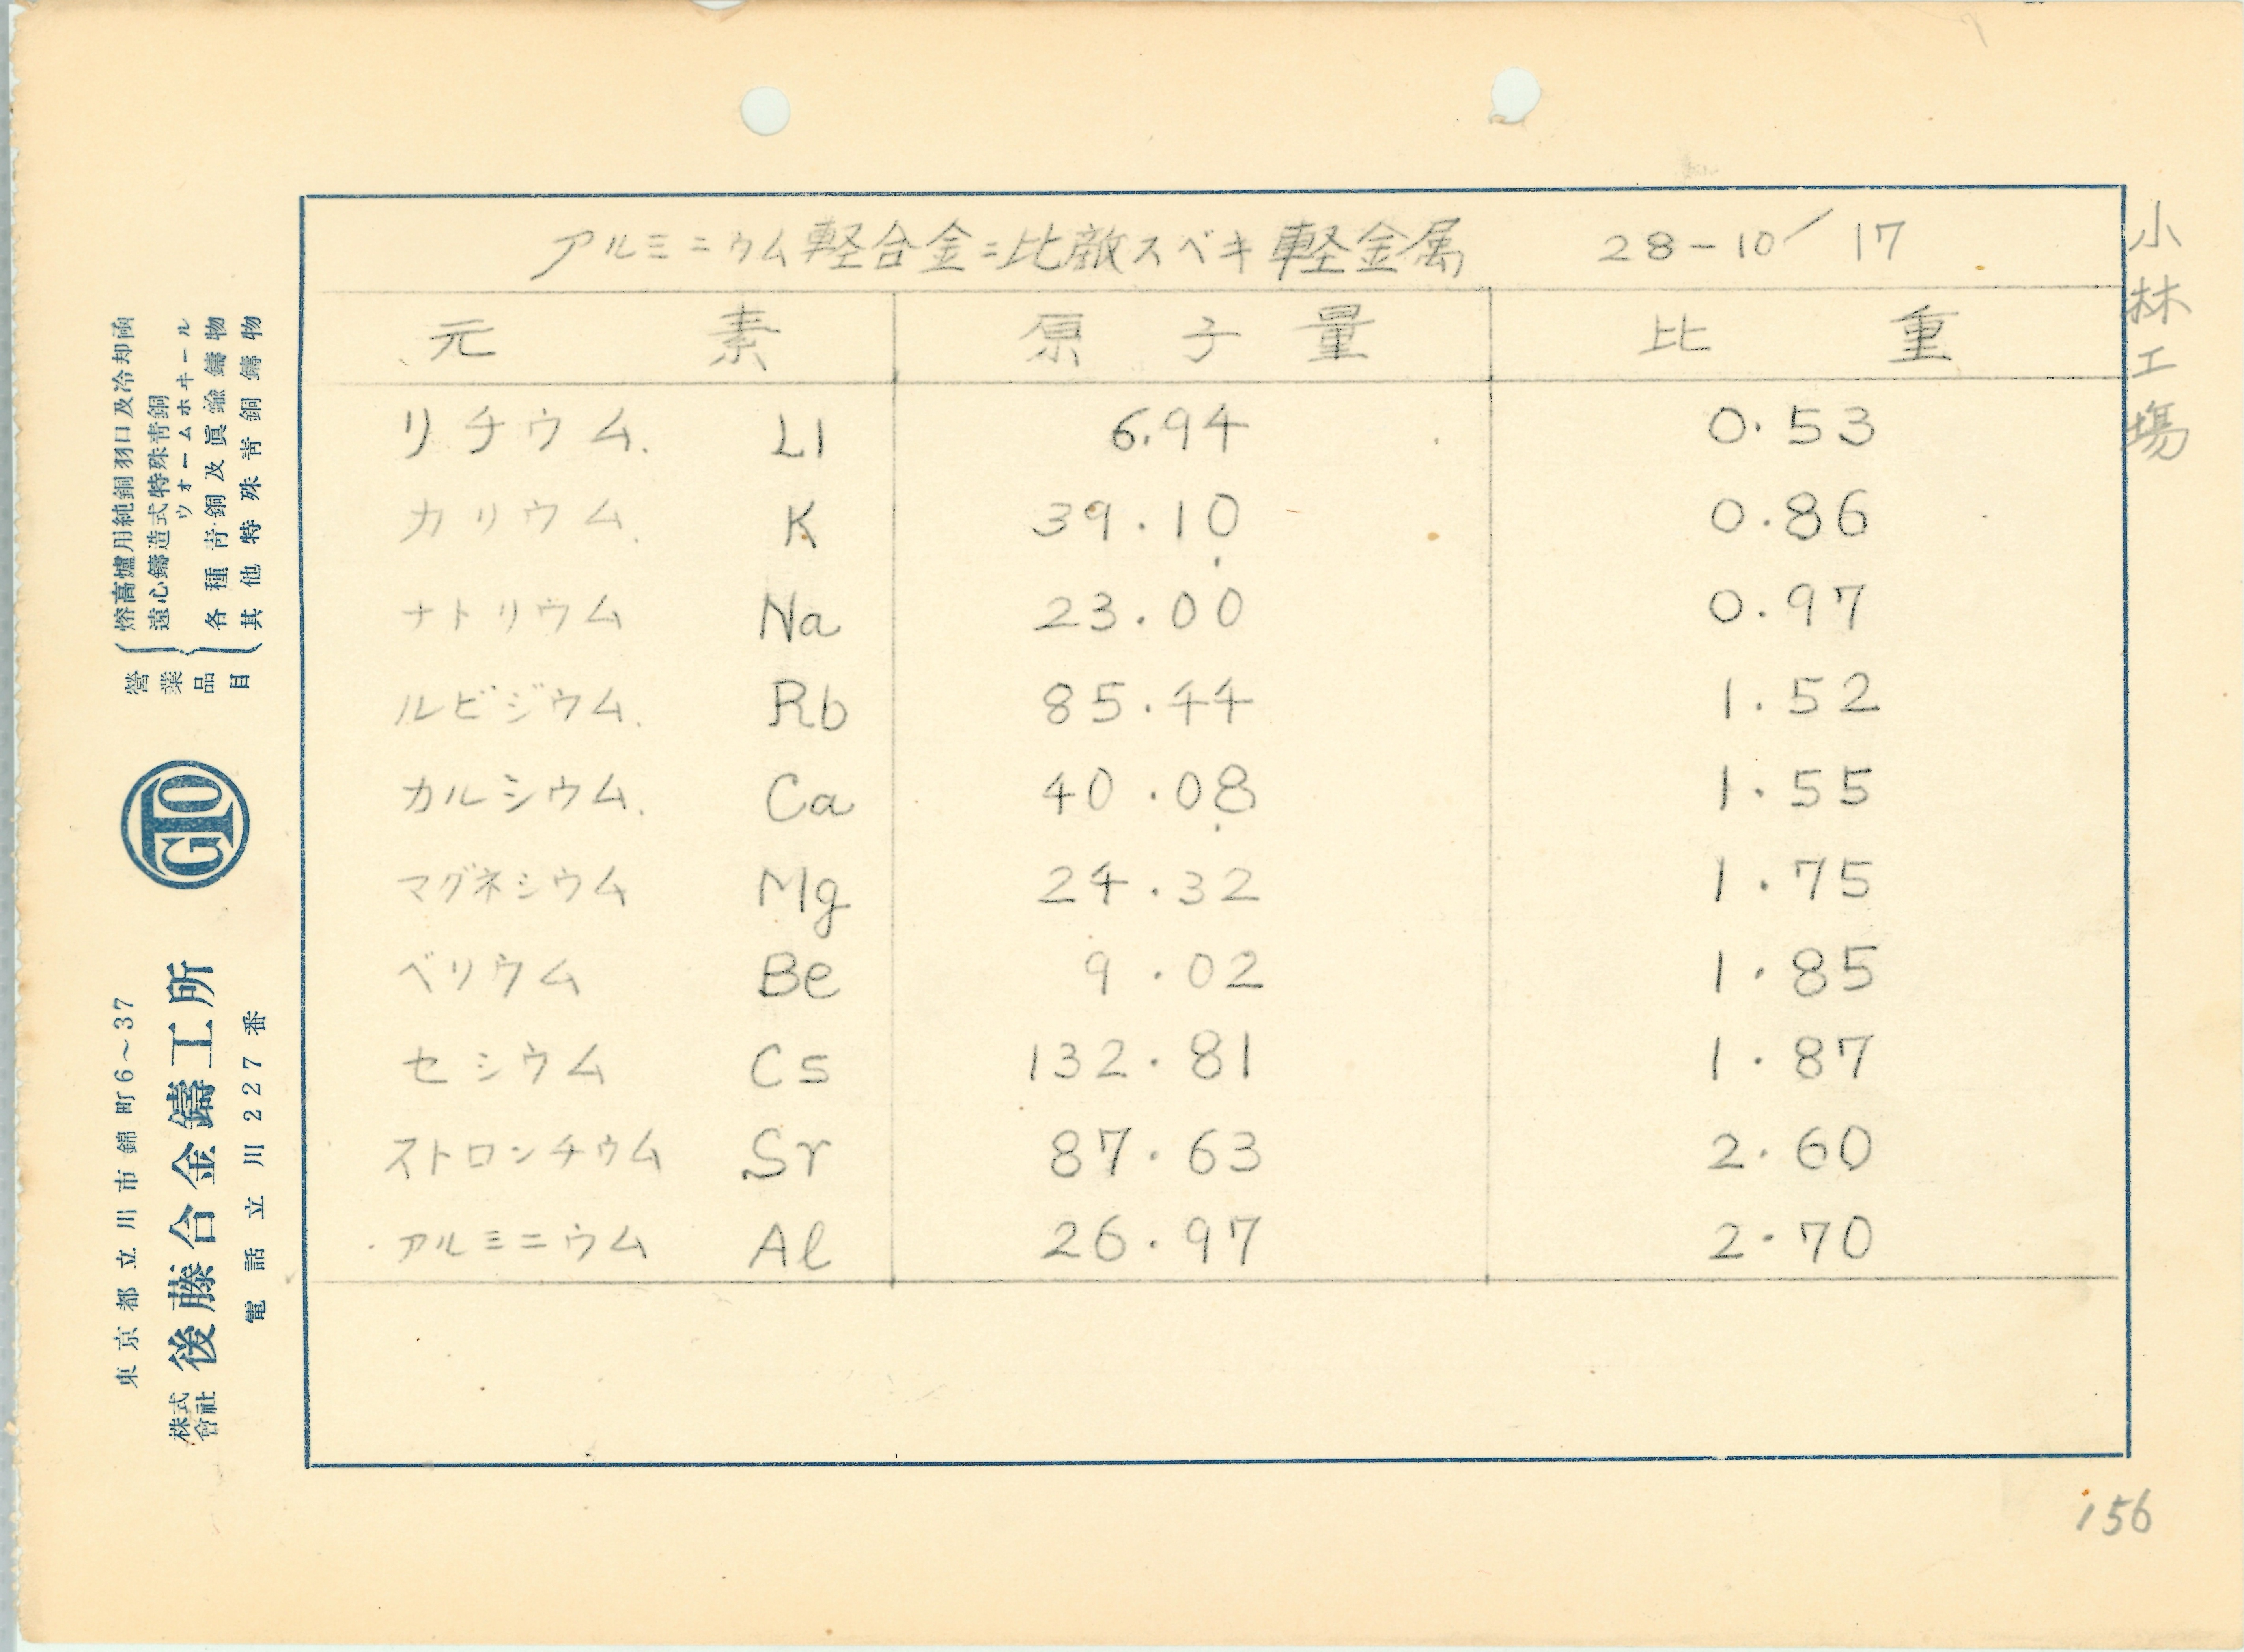 アルミニウム軽合金ニ比敵スベキ軽金属 28-10/17
小林工場
元素 原子量 比重
リチウム. Li 6.94 0.53
カリウム. K 39.10 0.86
ナトリウム Na 23.00 0.97
ルビジウム. Rb 85.44 1.52
カルシウム. Ca 40.08 1.55
マグネシウム Mg 24.32 1.75
ベリウム Be 9.02 1.85
セシウム Cs 132.81 1.87
ストロンチウム Sr 87.63 2.60
アルミニウム Al 26.97 2.70
156
東京都立川市錦町6~37
株式會社 後藤合金鑄工所
電話立川227番
GTO
營業品目
熔高爐用純銅羽口及冷却函
遠心鑄造式特殊青銅
ウォームホキール
各種青銅及眞鍮鑄物
其他特殊青銅鑄物